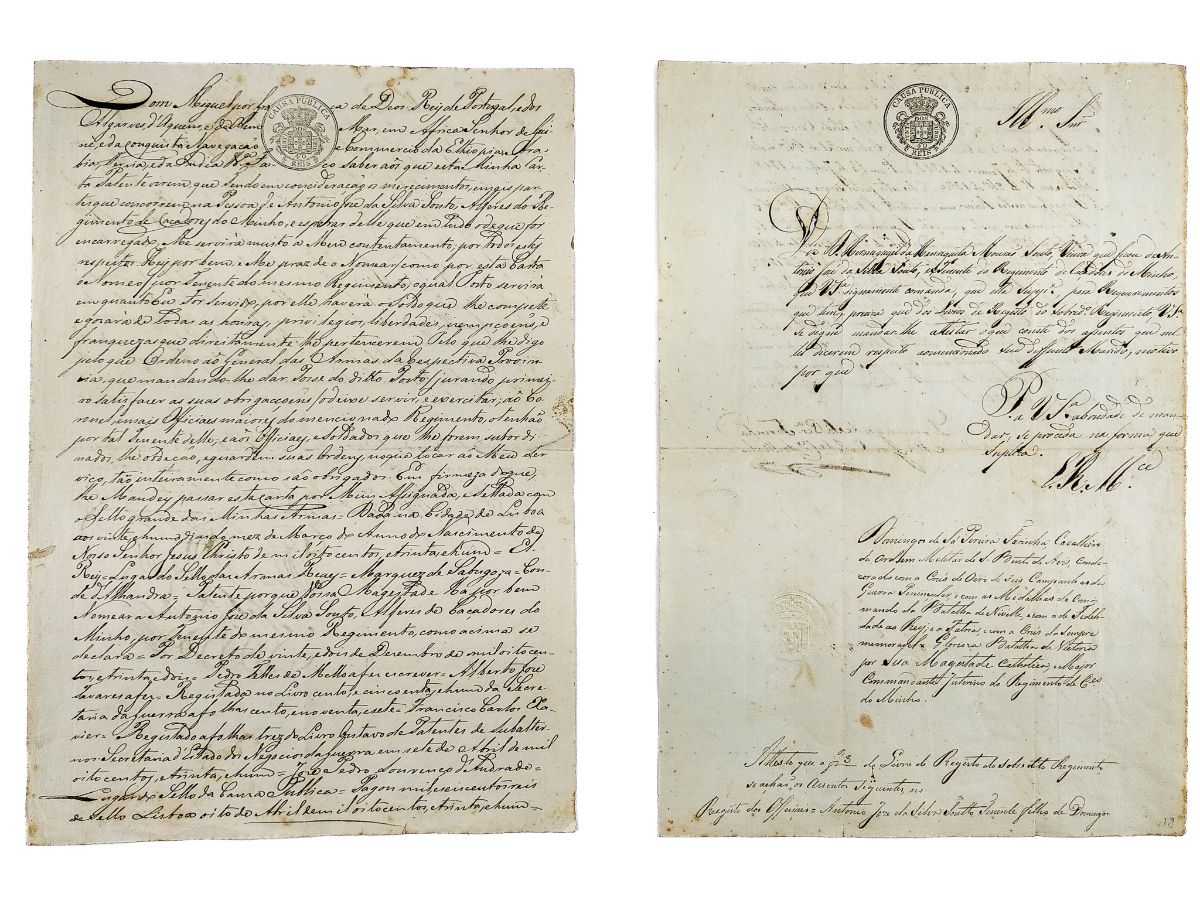 Dom Miguel por Graça de Deos Rey de Portugal, e dos
Algarves, d'Aquem, e dalem Mar, em Africa Senhor de Gui
né, e da conquista Navegação e Commercio da Ethiopia Ara
bia, Persia, e da India &ª Faço saber aos que esta Minha Car
ta Patente virem, que tendo em consideração os merecimentos, e mais par
tes que concorrem na Pessoa de Antonio José da Silva Souto, Alferes do Re
gimento de Caçadores do Minho, e esperar delle que em tudo o de que for
encarregado, Me servirá muito a Meu contentamento, por todos estes
respeitos: Hey por bem, e Me praz de o Nomear, como por esta Carta
o Nomeio, por Tenente do mesmo Regimento, o qual Posto servirá
em quanto Eu For Servido, e por elle haverá o Soldo que lhe compete
e gozará de todas as honras, privilegios, liberdades, izempçoens, e
franquezas que direitamente lhe pertencerem. Pelo que lhe digo
pelo que Ordeno ao General das Armas da respectiva Provin
cia, que mandando-lhe dar Posse do ditto Posto, jurando primei
ro satisfazer as suas obrigaçoens, o deixe servir, e exercitar; ao Co
ronel, e mais Officiaes maiores do mencionado Regimento, o tenhão
por tal Tenente delle; e aos Officiaes, e Soldados que lhe forem subordi
nados, lhe obedeção, e guardem suas ordens, no que tocar ao Meu Ser
viço, tão inteiramente como são obrigados. Em firmeza do que,
lhe Mandey passar esta carta por Mim Assignada, e Sellada com
o Sello grande das Minhas Armas = Dada na Cidade de Lisboa
aos vinte, e hum dias do mez de Março do Anno do Nascimento de
Nosso Senhor Jesus Christo de mil oito centos, e trinta, e hum = El
Rey = Lugar do Sello das Armas Reaes = Marquez de Sabugoza = Con
de d'Alhandra = Patente porque Vossa Magestade Ha por bem
Nomear a Antonio José da Silva Souto, Alferes de Caçadores do
Minho, por Tenente do mesmo Regimento, como acima se
declara = Por Decreto de vinte, e dois de Dezembro de mil oito cen
tos, e trinta = Pedro Telles de Mello a fez escrever = Alberto José
Tavares a fez = Registada no Livro cento, e cincoenta, e hum da Secre
taria da Guerra a folhas cento, e noventa, e sete = Francisco Carlos Xa
vier = Registado a folhas trez do Livro Oitavo de Patentes de Subalter
nos Secretaria d'Estado dos Negocios da Guerra em sete de Abril de mil
oito centos, e trinta, e hum = José Pedro Lourenço d'Andrade =
Lugar do Sello da Causa Publica = Pagou mil, e seis centos reis
de Sello Lisboa oito de Abril de mil oito centos, e trinta, e hum =
CAUSA PUBLICA
REIS
Illmo. Snr
CAUSA PUBLICA
40
REIS
Diz D. Souto, Viuva que ficou d'Anto
nio José da Silva Souto, Tenente do Regimento de Caçadores do Minho,
que V. Sª dignamente comanda, que ella Suppe. para Requerimentos
que tem, precisa que dos Livros de Registo do Sobredº Regimento V. Sª
se digne mandar-lhe atestar o que conste dos assentos que nel
les dicerem respeito ao mencionado seu deffunto Marido, motivo
por que
P. a V. Sª a bondade de man
dar, se proceda na forma que
suplica.
E. R. Mce
Domingos de Sá Pereira Farinha Cavalheiro
da Ordem Militar de S. Bento de Aviz, Conde
corado com a Cruz de Oiro de Seis Campanhas da
Guerra Peninsular, e com as Medalhas do Com
mando da Batalha de Nivelle, e com a de Fideli
dade ao Rey, e a Patria, e com a Cruz da Sempre
memoravel, e Gloriosa Batalha de Victoria
por Sua Magestade Catholica, e Major
Commandante Interino do Regimento de Ces
do Minho.
Attesto que a f. 3 do Livro de Registo do sobredito Regimento
se achão os Assentos Seguintes
Registo dos Officiaes = Antonio José da Silva Soutto Tenente filho de Domingos